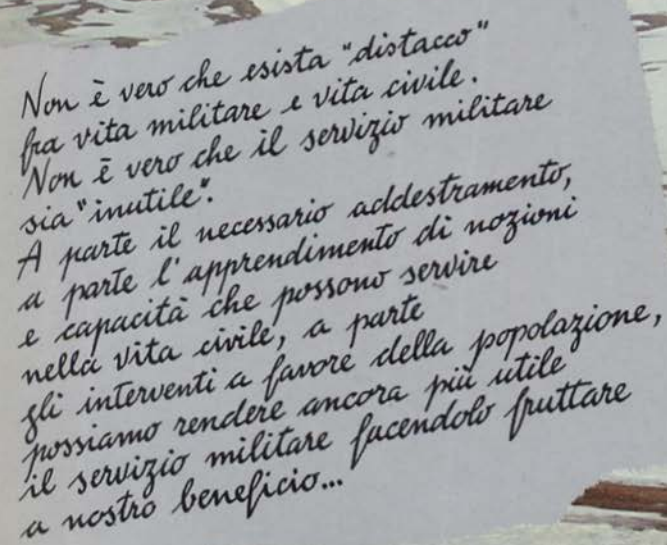 Non è vero che esista "distacco"
fra vita militare e vita civile.
Non è vero che il servizio militare
sia "inutile".
A parte il necessario addestramento,
a parte l'apprendimento di nozioni
e capacità che possono servire
nella vita civile, a parte
gli interventi a favore della popolazione,
possiamo rendere ancora più utile
il servizio militare facendolo fruttare
a nostro beneficio...